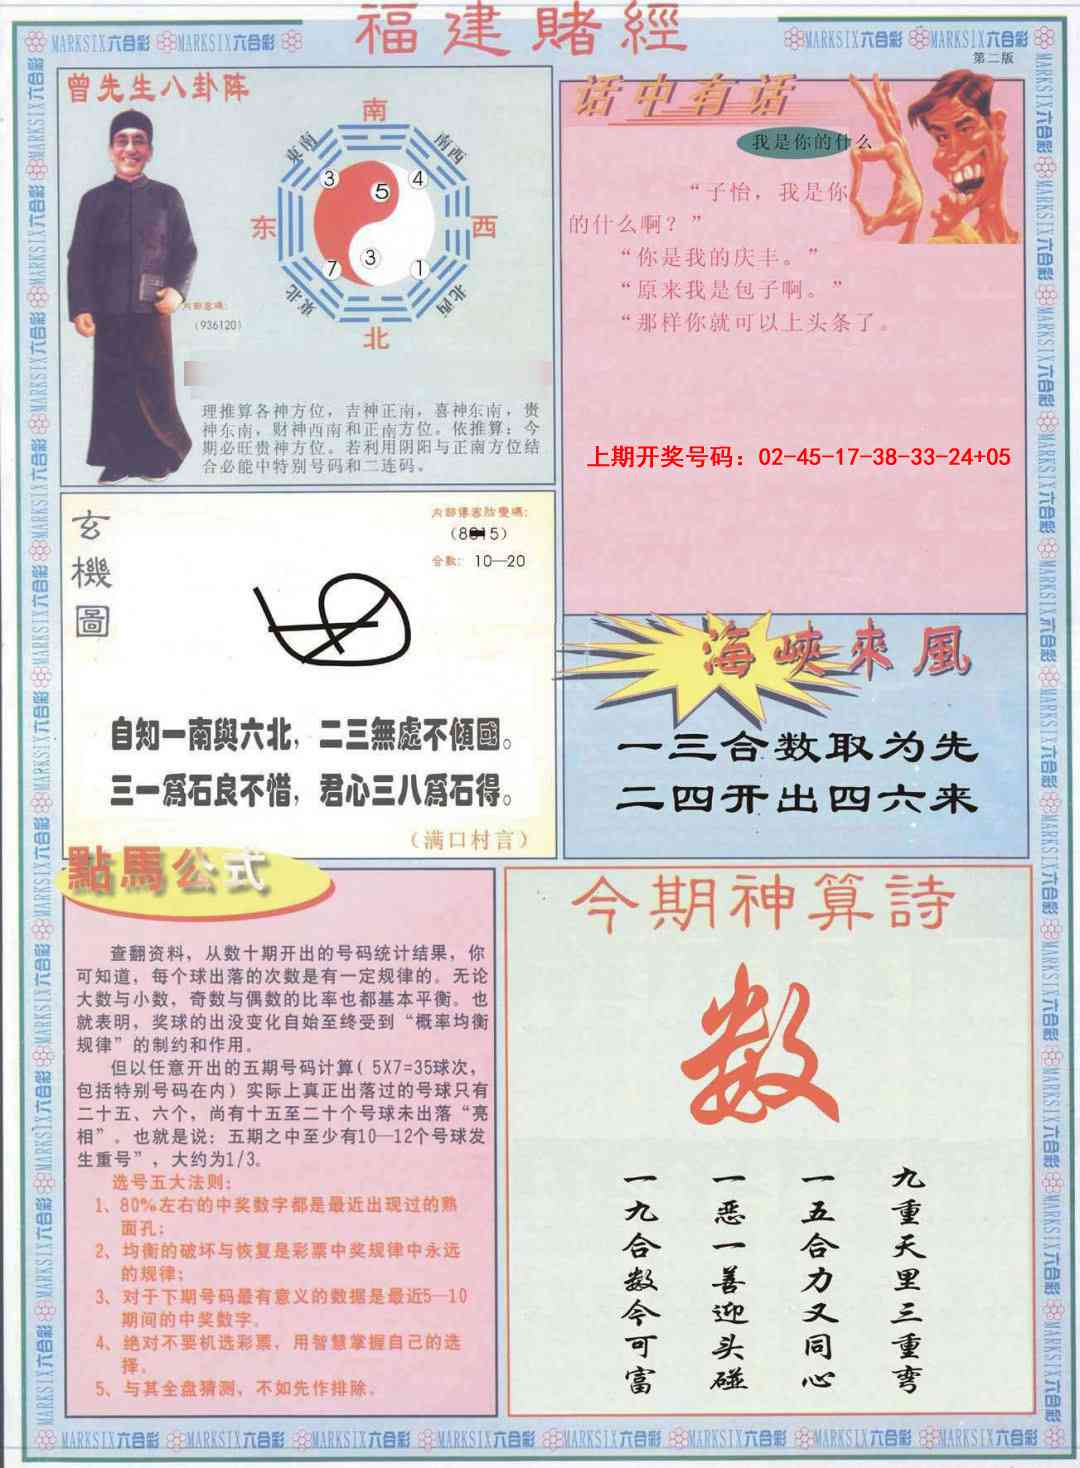 福建賭經
MARKSIX六合彩 MARKSIX六合彩 MARKSIX六合彩 MARKSIX六合彩
第二版
曾先生八卦阵
南
東南
南西
3
5
4
东
西
7
3
1
東北
北西
北
内部密碼:
(936120)
理推算各神方位，吉神正南，喜神东南，贵
神东南，财神西南和正南方位。依推算：今
期必旺贵神方位。若利用阴阳与正南方位结
合必能中特别号码和二连码。
话中有话
我是你的什么
“子怡，我是你
的什么啊？”
“你是我的庆丰。”
“原来我是包子啊。”
“那样你就可以上头条了。
上期开奖号码：02-45-17-38-33-24+05
玄機圖
合數: 10—20
自知一南與六北，二三無處不傾國。
三一爲石良不惜，君心三八爲石得。
（满口村言）
海峽來風
一三合数取为先
二四开出四六来
點馬公式
查翻资料，从数十期开出的号码统计结果，你
可知道，每个球出落的次数是有一定规律的。无论
大数与小数，奇数与偶数的比率也都基本平衡。也
就表明，奖球的出没变化自始至终受到“概率均衡
规律”的制约和作用。
但以任意开出的五期号码计算( 5X7=35球次，
包括特别号码在内）实际上真正出落过的号球只有
二十五、六个，尚有十五至二十个号球未出落“亮
相”。也就是说：五期之中至少有10—12个号球发
生重号”，大约为1/3。
选号五大法则：
1、80%左右的中奖数字都是最近出现过的熟
面孔；
2、均衡的破坏与恢复是彩票中奖规律中永远
的规律；
3、对于下期号码最有意义的数据是最近5—10
期间的中奖数字。
4、绝对不要机选彩票，用智慧掌握自己的选
择。
5、与其全盘猜测，不如先作排除。
今期神算詩
数
九重天里三重弯
一五合力又同心
一恶一善迎头碰
一九合数今可富
MARKSIX六合彩 MARKSIX六合彩 MARKSIX六合彩 MARKSIX六合彩 MARKSIX六合彩 MARKSIX六合彩 MARKSIX六合彩 MARKSIX六合彩